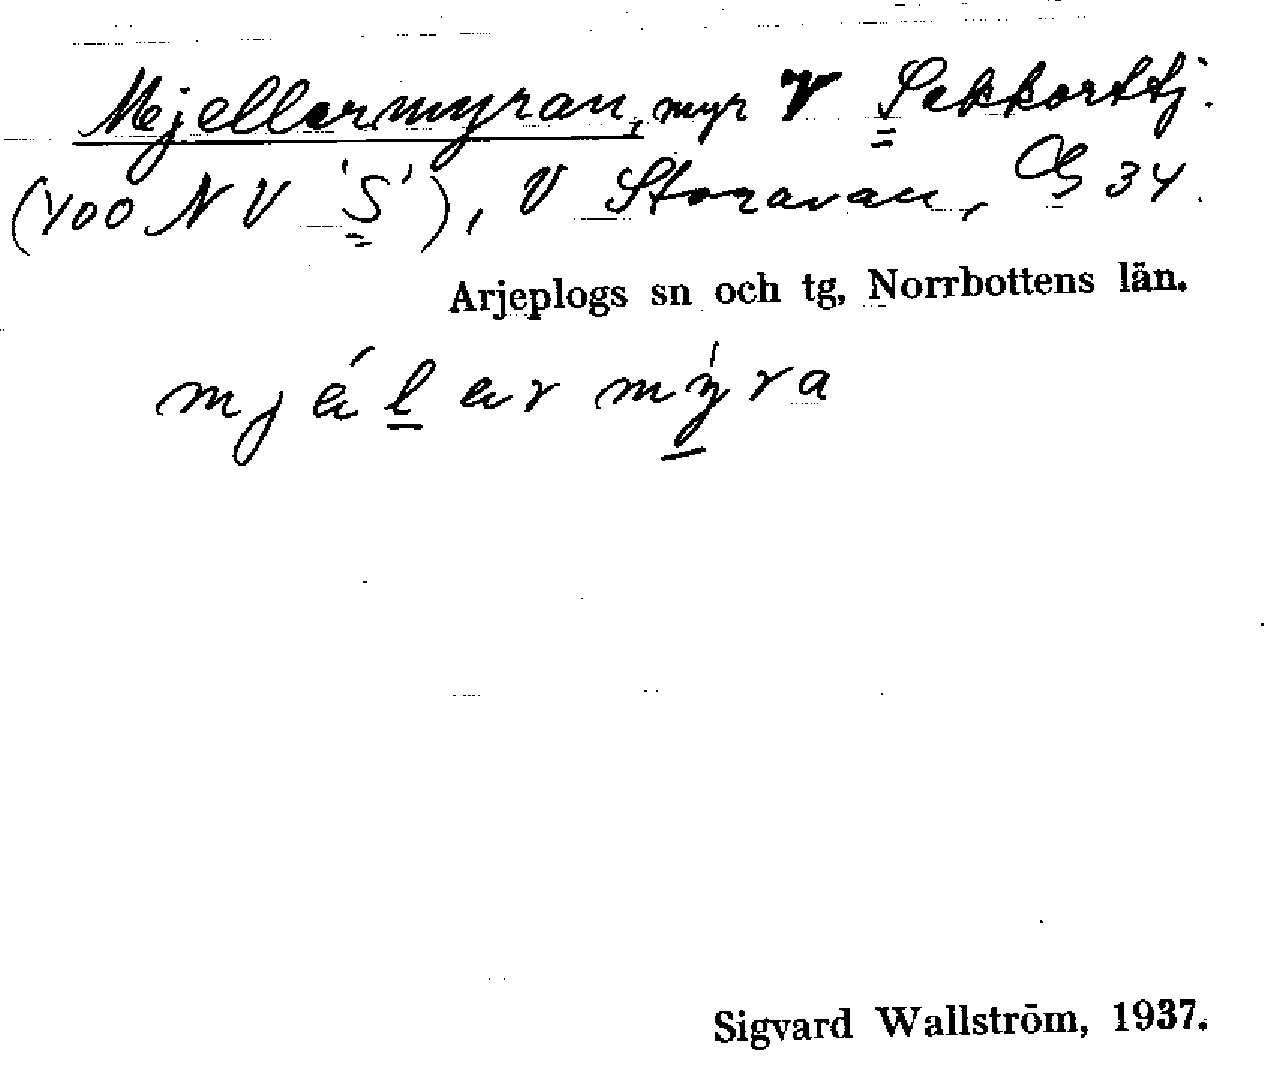 Mjellarmyran, myr V Sakkorttj.
(400 NV 'S'), V Storavan, 34.
Arjeplogs sn och tg, Norrbottens län.
mjǽlær mýra
Sigvard Wallström, 1937.